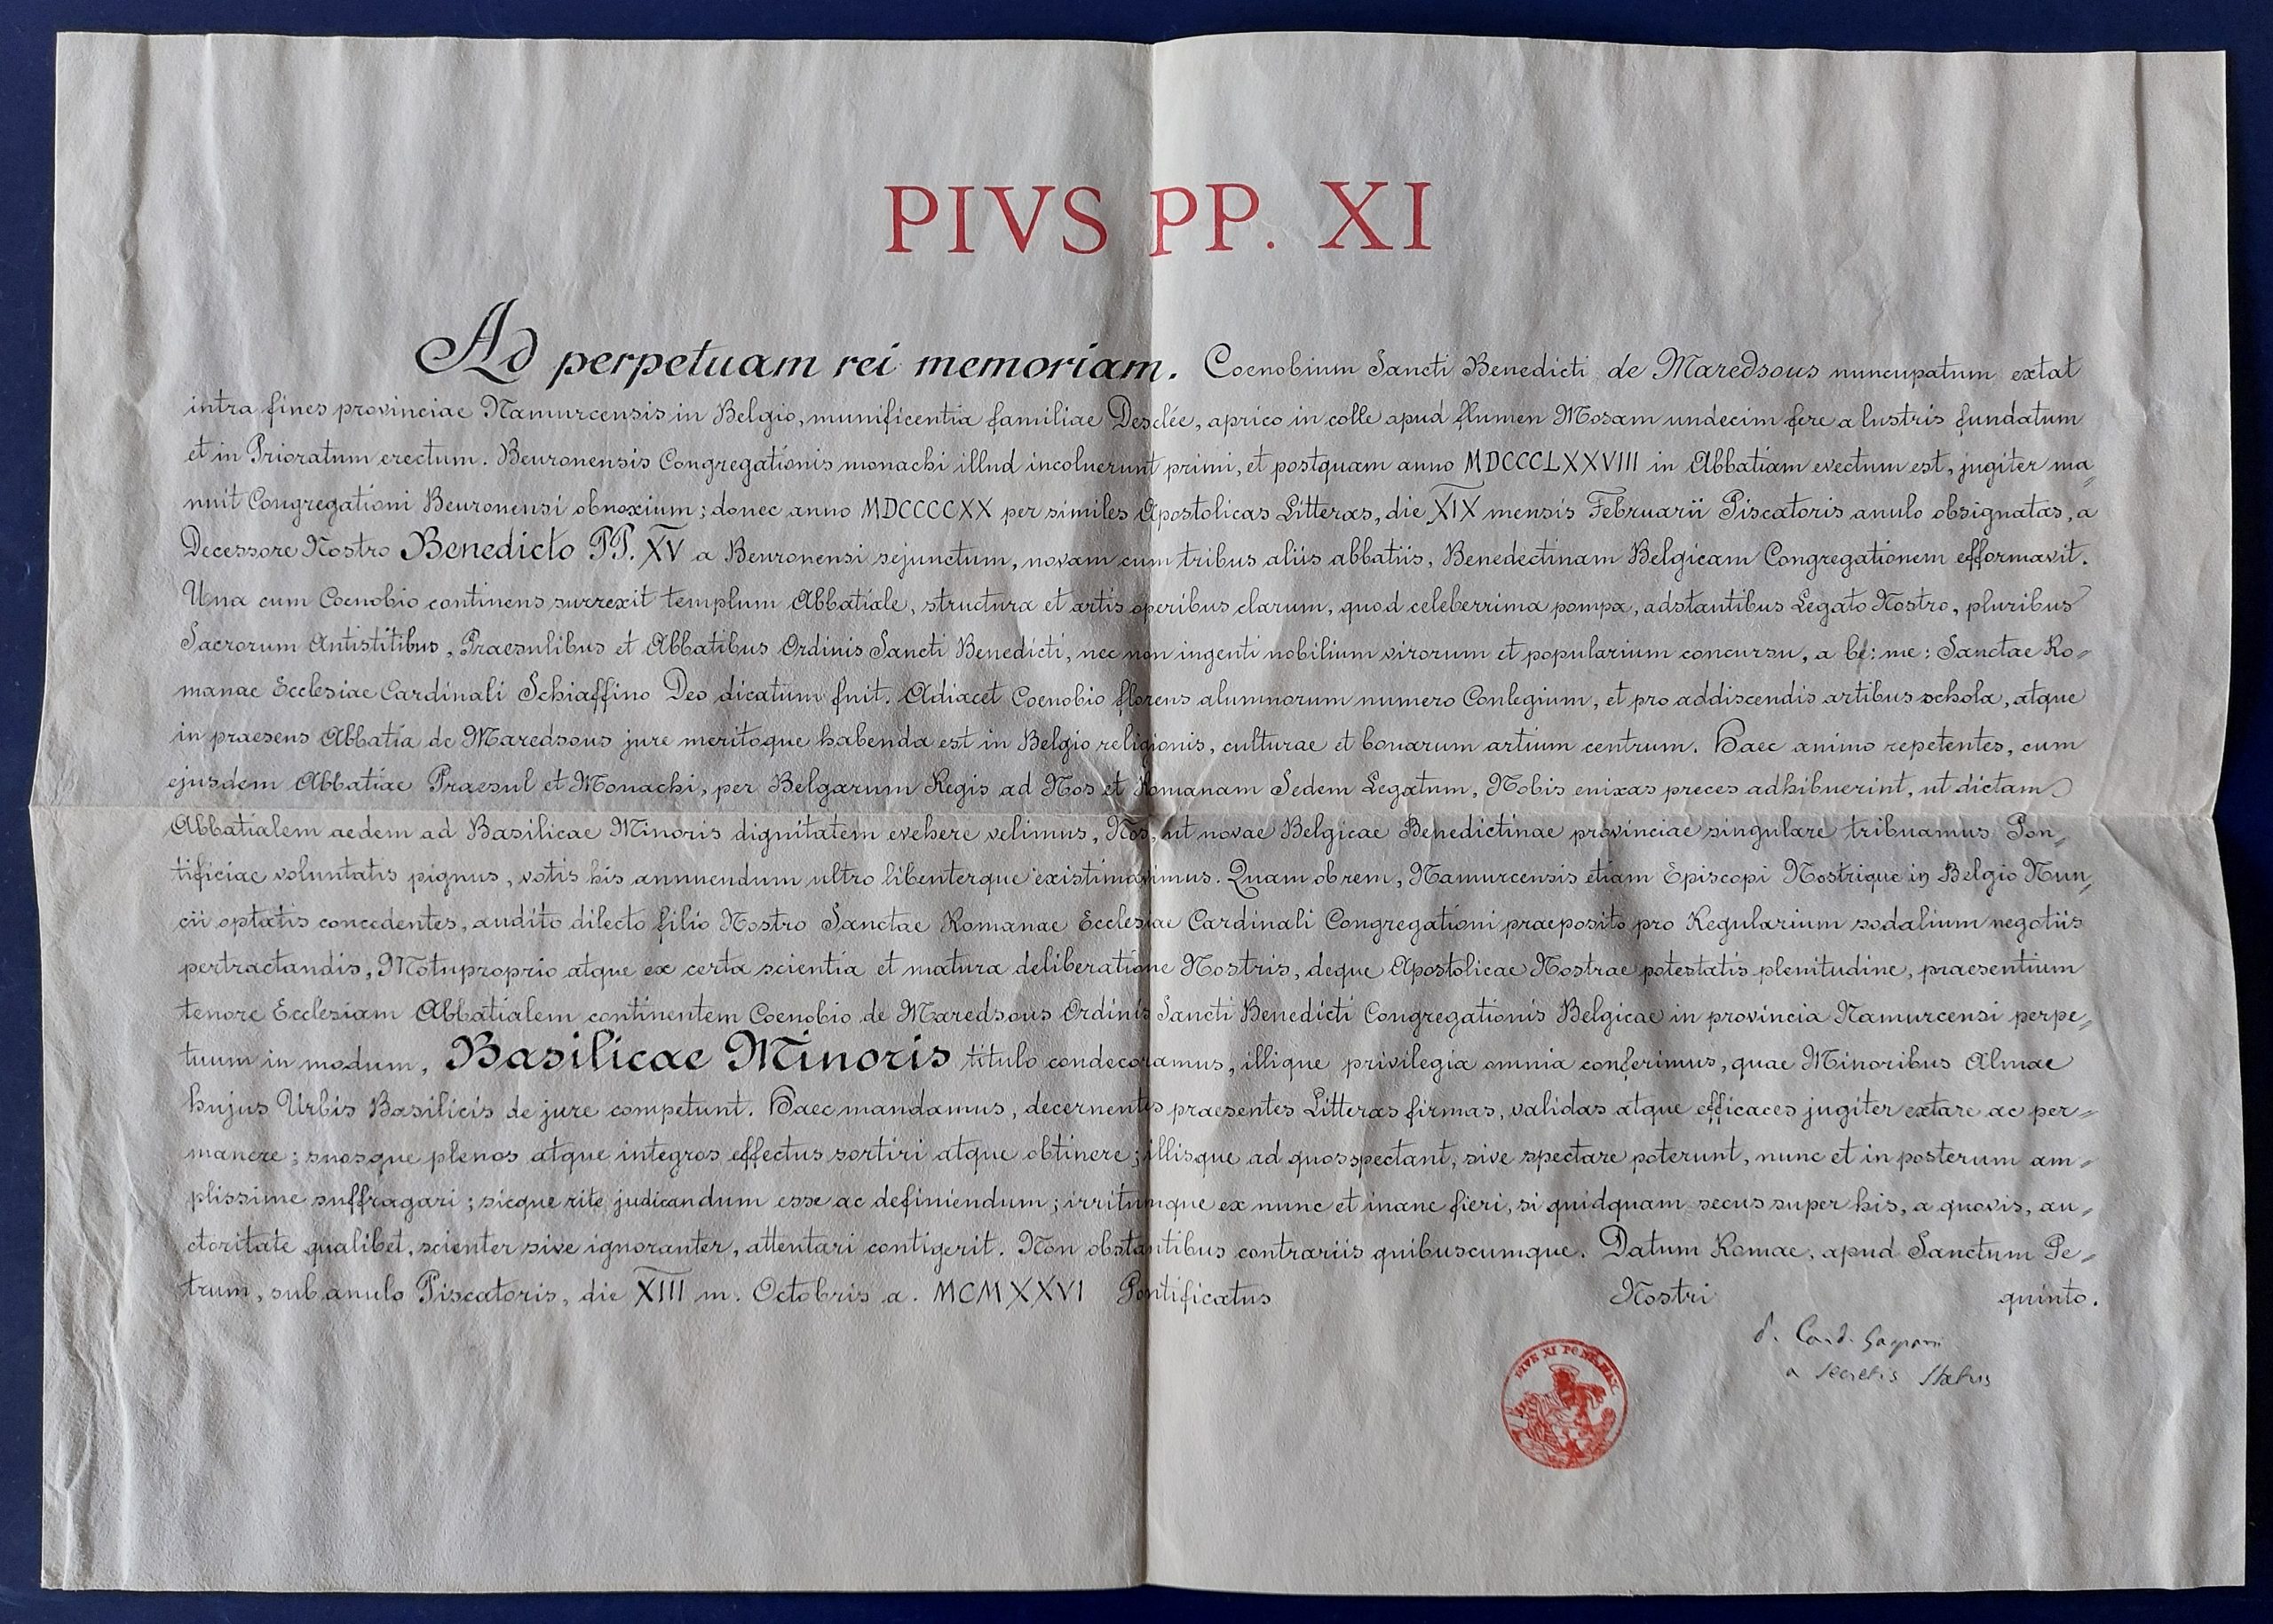 PIVS PP. XI
Ad perpetuam rei memoriam. Coenobium Sancti Benedicti de Maredsous nuncupatum extat
intra fines provinciae Namurcensis in Belgio, munificentia familiae Desclée, aprico in colle apud flumen Mosam undecim fere a lustris fundatum
et in Prioratum erectum. Beuronensis Congregationis monachi illud incoluerunt primi, et postquam anno MDCCCLXXVIII in Abbatiam evectum est, jugiter ma„
nuit Congregationi Beuronensi obnoxium; donec anno MDCCCCXX per similes Apostolicas Litteras, die XIX mensis Februarii Piscatoris anulo obsignatas, a
Decessore Nostro Benedicto PP. XV a Beuronensi sejunctum, novam cum tribus aliis abbatiis, Benedectinam Belgicam Congregationem efformavit.
Una cum Coenobio continens surrexit templum Abbatiale, structura et artis operibus clarum, quod celeberrima pompa, adstantibus Legato Nostro, pluribus
Sacrorum Antistitibus, Praesulibus et Abbatibus Ordinis Sancti Benedicti, nec non ingenti nobilium virorum et popularium concursu, a be: me: Sanctae Ro„
manae Ecclesiae Cardinali Schiaffino Deo dicatum fuit. Adiacet Coenobio florens alumnorum numero Conlegium, et pro addiscendis artibus schola, atque
in praesens Abbatia de Maredsous jure meritoque habenda est in Belgio religionis, culturae et bonarum artium centrum. Haec animo repetentes, cum
ejusdem Abbatiae Praesul et Monachi, per Belgarum Regis ad Nos et Romanam Sedem Legatum, Nobis enixas preces adhibuerint, ut dictam
Abbatialem aedem ad Basilicae Minoris dignitatem evehere velimus, Nos, ut novae Belgicae Benedictinae provinciae singulare tribuamus Pon„
tificiae voluntatis pignus, votis his annuendum ultro libenterque existimavimus. Quam ob rem, Namurcensis etiam Episcopi Nostrique in Belgio Nun„
cii optatis concedentes, audito dilecto filio Nostro Sanctae Romanae Ecclesiae Cardinali Congregationi praeposito pro Regularium sodalium negotiis
pertractandis, Motuproprio atque ex certa scientia et matura deliberatione Nostris, deque Apostolicae Nostrae potestatis plenitudine, praesentium
tenore Ecclesiam Abbatialem continentem Coenobio de Maredsous Ordinis Sancti Benedicti Congregationis Belgicae in provincia Namurcensi perpe„
tuum in modum, Basilicae Minoris titulo condecoramus, illique privilegia omnia conferimus, quae Minoribus Almae
hujus Urbis Basilicis de jure competunt. Haec mandamus, decernentes praesentes Litteras firmas, validas atque efficaces jugiter extare ac per„
manere; suosque plenos atque integros effectus sortiri atque obtinere; illisque ad quos spectant, sive spectare poterunt, nunc et in posterum am„
plissime suffragari; sicque rite judicandum esse ac definiendum; irritumque ex nunc et inane fieri, si quidquam secus super his, a quovis, au„
ctoritate qualibet, scienter sive ignoranter, attentari contigerit. Non obstantibus contrariis quibuscumque. Datum Romae, apud Sanctum Pe„
trum, sub anulo Piscatoris, die XIII m. Octobris a. MCMXXVI Pontificatus Nostri quinto.
P. Card. Gasparri
a Secretis Status
PIVS XI PONT. MAX.